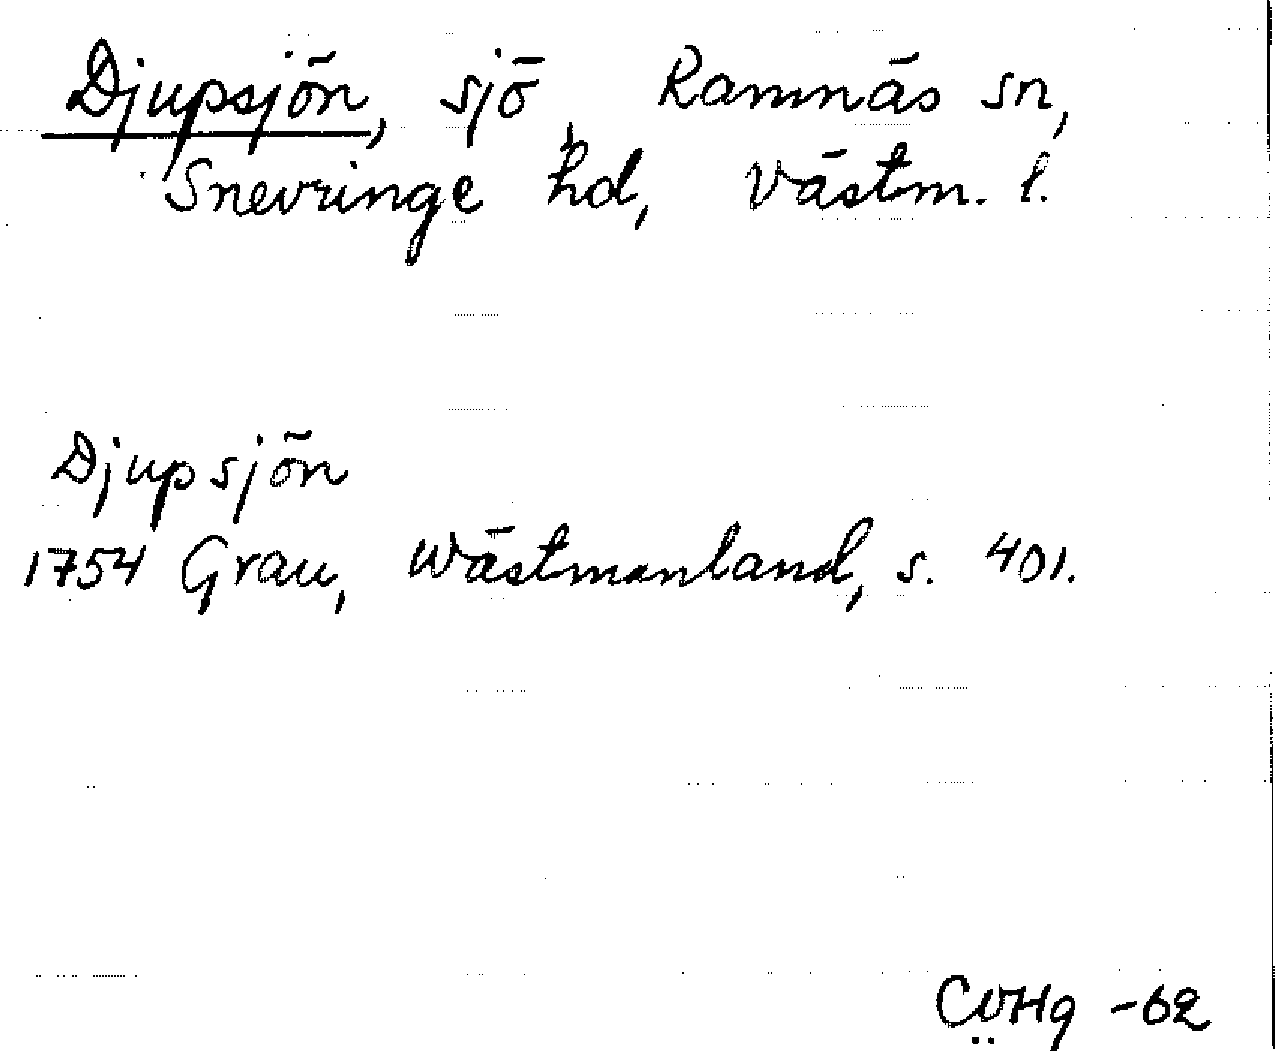 Djupsjön, sjö, Ramnäs sn,
Snevringe hd, Västm. l.
Djupsjön
1754 Grau, Wästmanland, s. 401.
CÖHg -62